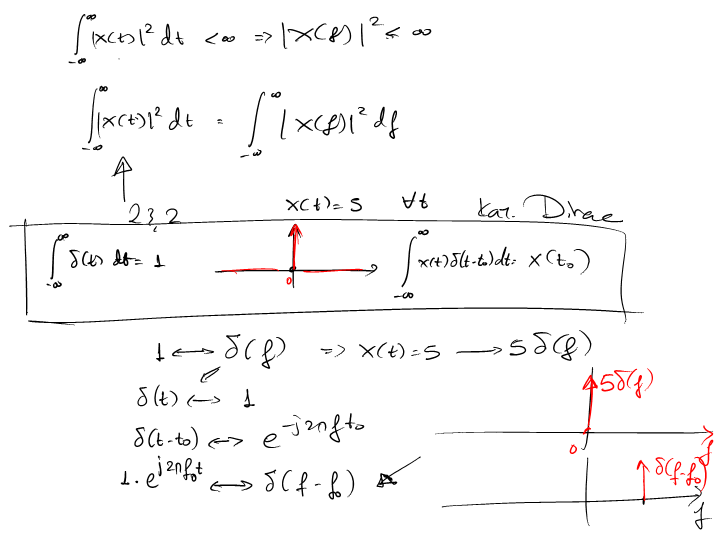 ∫_{-∞}^{∞} |x(t)|² dt < ∞ ⇒ |X(f)|² < ∞
∫_{-∞}^{∞} |x(t)|² dt = ∫_{-∞}^{∞} |X(f)|² df
x(t) = 5 ∀t Dirac
∫_{-∞}^{∞} δ(t) dt = 1
0
∫_{-∞}^{∞} x(t)δ(t-t₀)dt = x(t₀)
1 ↔ δ(f) ⇒ x(t) = 5 → 5δ(f)
δ(t) ↔ 1
δ(t-t₀) ↔ e^{-j2πft₀}
1·e^{j2πf₀t} ↔ δ(f-f₀)
5δ(f)
0
f
δ(f-f₀)
f